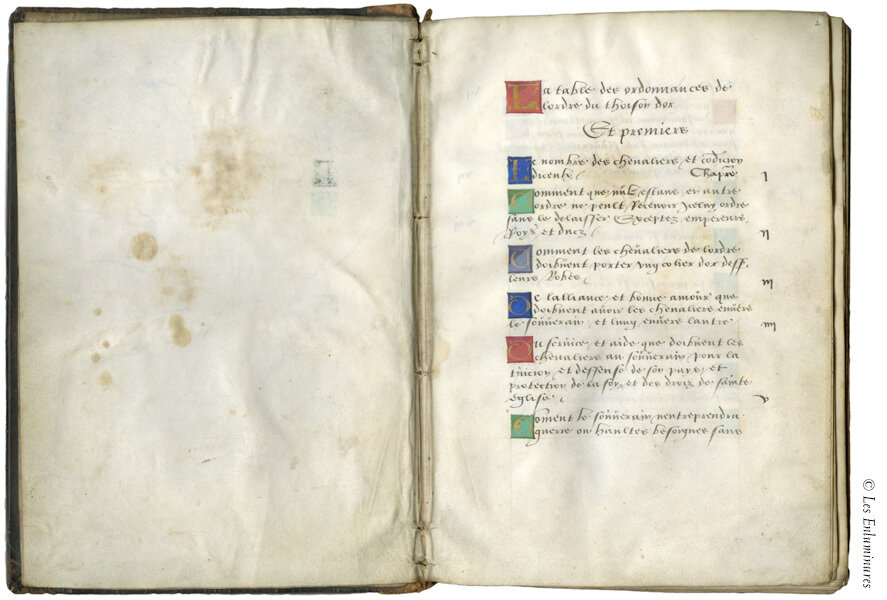 2
La table des ordonnances de
lordre du thoison dor
Et premiers
Le nombre des chevaliers, et condicion
diceulx Chapre I
Comment que nulz estans en autre
ordre ne peult recevoir Icelluy ordre
sans le delaisser Exceptez empereurs,
Roys et ducz II
Comment les chevaliers de lordre
doibvent porter ung colier dor dess,
leurs Robes III
De lalliance et bonne amour que
doibvent avoir les chevaliers envers
le souverain, et lung envers lautre IIII
Du service et aide que doibvent les
chevaliers au souverain pour la
tuicion et deffense de son pays, et
protection de la foy, et des droiz de sainte
eglise V
Coment le souverain nentreprendra
guerre ou haultes besoignes sans
© Les Enluminures